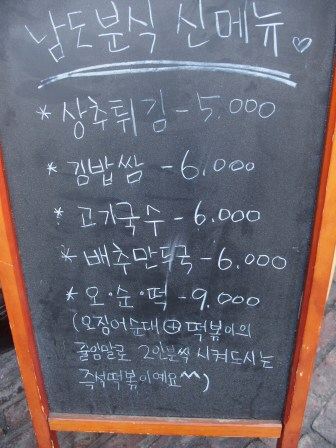 남도분식 신메뉴♡
* 상추튀김 - 5.000
* 김밥쌈 - 6.000
* 고기국수 - 6.000
* 배추만두국 - 6.000
* 오·순·떡 - 9.000
(오징어순대 ⊕ 떡볶이의
줄임말로 2인분씩 시켜드시는
즉석떡볶이예요^^)